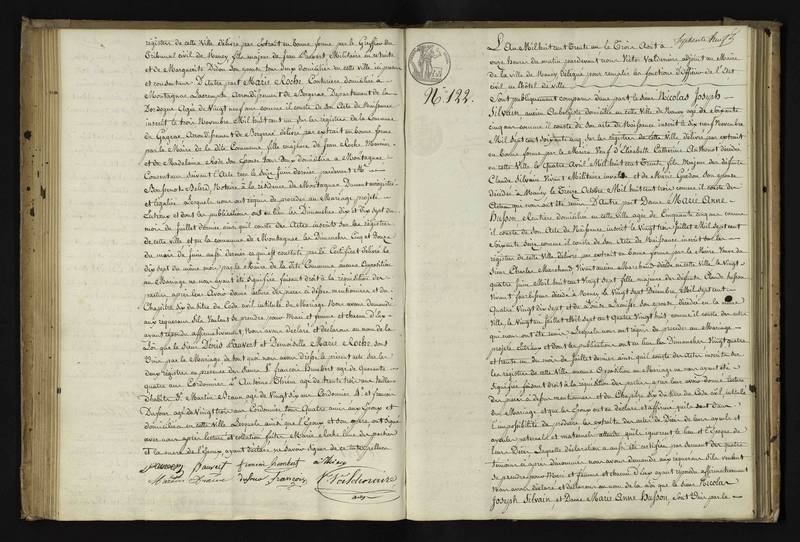 registre de cette Ville délivré par extrait en bonne forme par le Greffier du
Tribunal civil de Nancy fils majeur de Jean Pauvert Militaire en retraite
et de Marguerite Didon son épouse tous deux domiciliés en cette ville ici présens
et consentans D'Autre part Marie Roche Couturière domiciliée à
Montagnac Arrondissement de Bergerac Département de la
Dordogne Agée de Vingt neuf ans comme il conste de son Acte de Naissance
inscrit le trois Novembre Mil huit cent un sur les registres de la Commune
de Arrondissement de Bergerac délivré par extrait en bonne forme
par le Maire de la dite Commune fille majeure de Jean Roche
et de Madelaine son Epouse tous deux domiciliés à Montagnac
Consentans suivant Acte reçu le seize Juin dernier présent Me
Notaire à la résidence de Montagnac Dument enregistré
et légalisé Lesquels nous ont requis de procéder au Mariage projeté
entr'eux et dont les publications ont eu lieu les Dimanches dix et dix sept du
mois de Juillet dernier ainsi qu'il conste des Actes inscrits sur les registres
de cette ville et en la commune de Montagnac les Dimanches Cinq et Douze
du mois de Juin aussi dernier ce qui est constaté par le Certificat délivré le
dix sept du même mois par le Maire de la dite Commune aucune Opposition
au Mariage ne nous ayant été signifiée faisant droit à la réquisition des
parties après leur avoir donné lecture des pièces ci dessus mentionnées et du
Chapitre Six du titre du Code civil intitulé du Mariage Nous avons demandé
aux requérans S'ils Veulent se prendre pour Mari et femme et chacun d'Eux
ayant répondu affirmativement Nous avons déclaré et déclarons au nom de la
Loi que le Sieur Denis Pauvert et Demoiselle Marie Roche sont
Unis par le Mariage de tout quoi nous avons dressé le présent acte sur les
deux registres en présence des Sieurs 1° François Humbert agé de Quarante
quatre ans Cordonnier 2° Antoine Thiery agé de trente trois ans tailleur
d'habits 3° Martin agé de Vingt six ans Cordonnier & 4° et François
Dufour agé de Vingt trois ans Cordonnier tous Quatre amis aux Epoux et
domiciliés en cette Ville Lesquels ainsi que l'Epoux et son père ont signé
avec nous après lecture et collation faites Marie Roche
et la mère de l'Epoux ayant déclaré ne savoir signer de ce interpellées
Pauvert Pauvert françois humbert a thiery
dufour françois
N°. 122.
L'An Mil huit cent trente un le Trois Août à
onze heures du matin pardevant nous Adjoint au Maire
de la ville de Nancy délégué pour remplir les fonctions d'Officier de l'Etat
civil en l'hôtel de Ville
Sont publiquement comparus d'une part le Sieur Nicolas Joseph
Silvain ancien Aubergiste domicilié en cette Ville de Nancy agé de Soixante
cinq ans comme il conste de son acte de Naissance inscrit le dix neuf Novembre
Mil sept cent soixante cinq sur les registres de cette Ville délivré par extrait
en bonne forme par le Maire Veuf d'Elisabeth Catherine Anthoine décédée
en cette Ville le Quatre Avril Mil huit cent trente fils Majeur des défunts
Claude Silvain Vivant Militaire invalide et de Marie Guédon son épouse
décédée à Nancy le Treize Octobre Mil huit cent trois comme il conste des
Actes qui nous ont été remis D'Autre part Dame Marie Anne
Husson Rentière domiciliée en cette Ville agée de Cinquante cinq ans comme
il conste de son Acte de Naissance inscrit le Vingt trois Juillet Mil sept cent
Soixante seize comme il conste de son Acte de Naissance inscrit sur les
registres de cette Ville délivré par extrait en bonne forme par le Maire Veuve du
Sieur Charles Marchand Vivant ancien Maréchal décédé en cette Ville le Vingt
quatre Juin Mil huit cent Vingt sept fille majeure des défunts Claude Husson
Vivant décédé à Nancy le Vingt sept Décembre Mil sept cent
Quatre Vingt dix sept et de son épouse décédée en la même
Ville le Vingt un Juillet Mil sept cent Quatre Vingt huit comme il conste des actes
qui nous ont été remis Lesquels nous ont requis de procéder au Mariage
projeté entr'eux et dont les publications ont eu lieu les Dimanches Vingt quatre
et trente un du mois de Juillet dernier ainsi qu'il conste des actes inscrits sur
les registres de cette Ville aucune Opposition au Mariage ne nous ayant été
Signifiée faisant droit à la réquisition des parties après leur avoir donné lecture
des pièces ci dessus mentionnées et du Chapitre six du titre du Code civil intitulé
du Mariage et que les Epoux ont eu déclaré et affirmé qu'ils sont dans
l'impossibilité de produire les extraits des actes de Décès de leurs ayeuls et
ayeules paternels et maternels attendu qu'ils ignorent le lieu et l'époque de
leurs Décès Laquelle déclaration a aussi été certifiée par serment des quatre
témoins ci après dénommés nous avons demandé aux requérans S'ils veulent
se prendre pour Mari et femme et chacun d'Eux ayant répondu affirmativement
Nous avons déclaré et déclarons au nom de la Loi que le Sieur Nicolas
Joseph Silvain, et Dame Marie Anne Husson, sont Unis par le